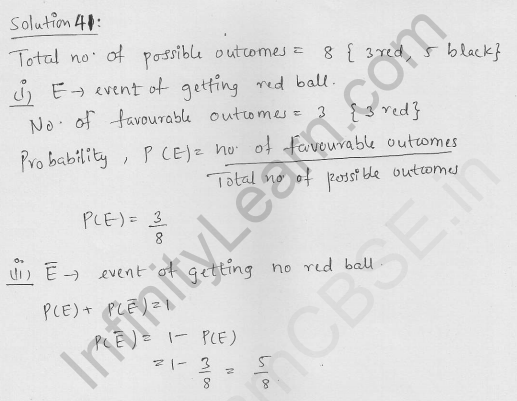 Solution 41:
Total no. of possible outcomes = 8 {3 red, 5 black}
(i) E → event of getting red ball.
No. of favourable outcomes = 3 {3 red}
Probability, P(E) = no. of favourable outcomes / Total no. of possible outcomes
P(E) = 3/8
(ii) E̅ → event of getting no red ball.
P(E) + P(E̅) = 1
P(E̅) = 1 - P(E)
= 1 - 3/8 = 5/8.
InfinityLearn.com
mCBSE.in